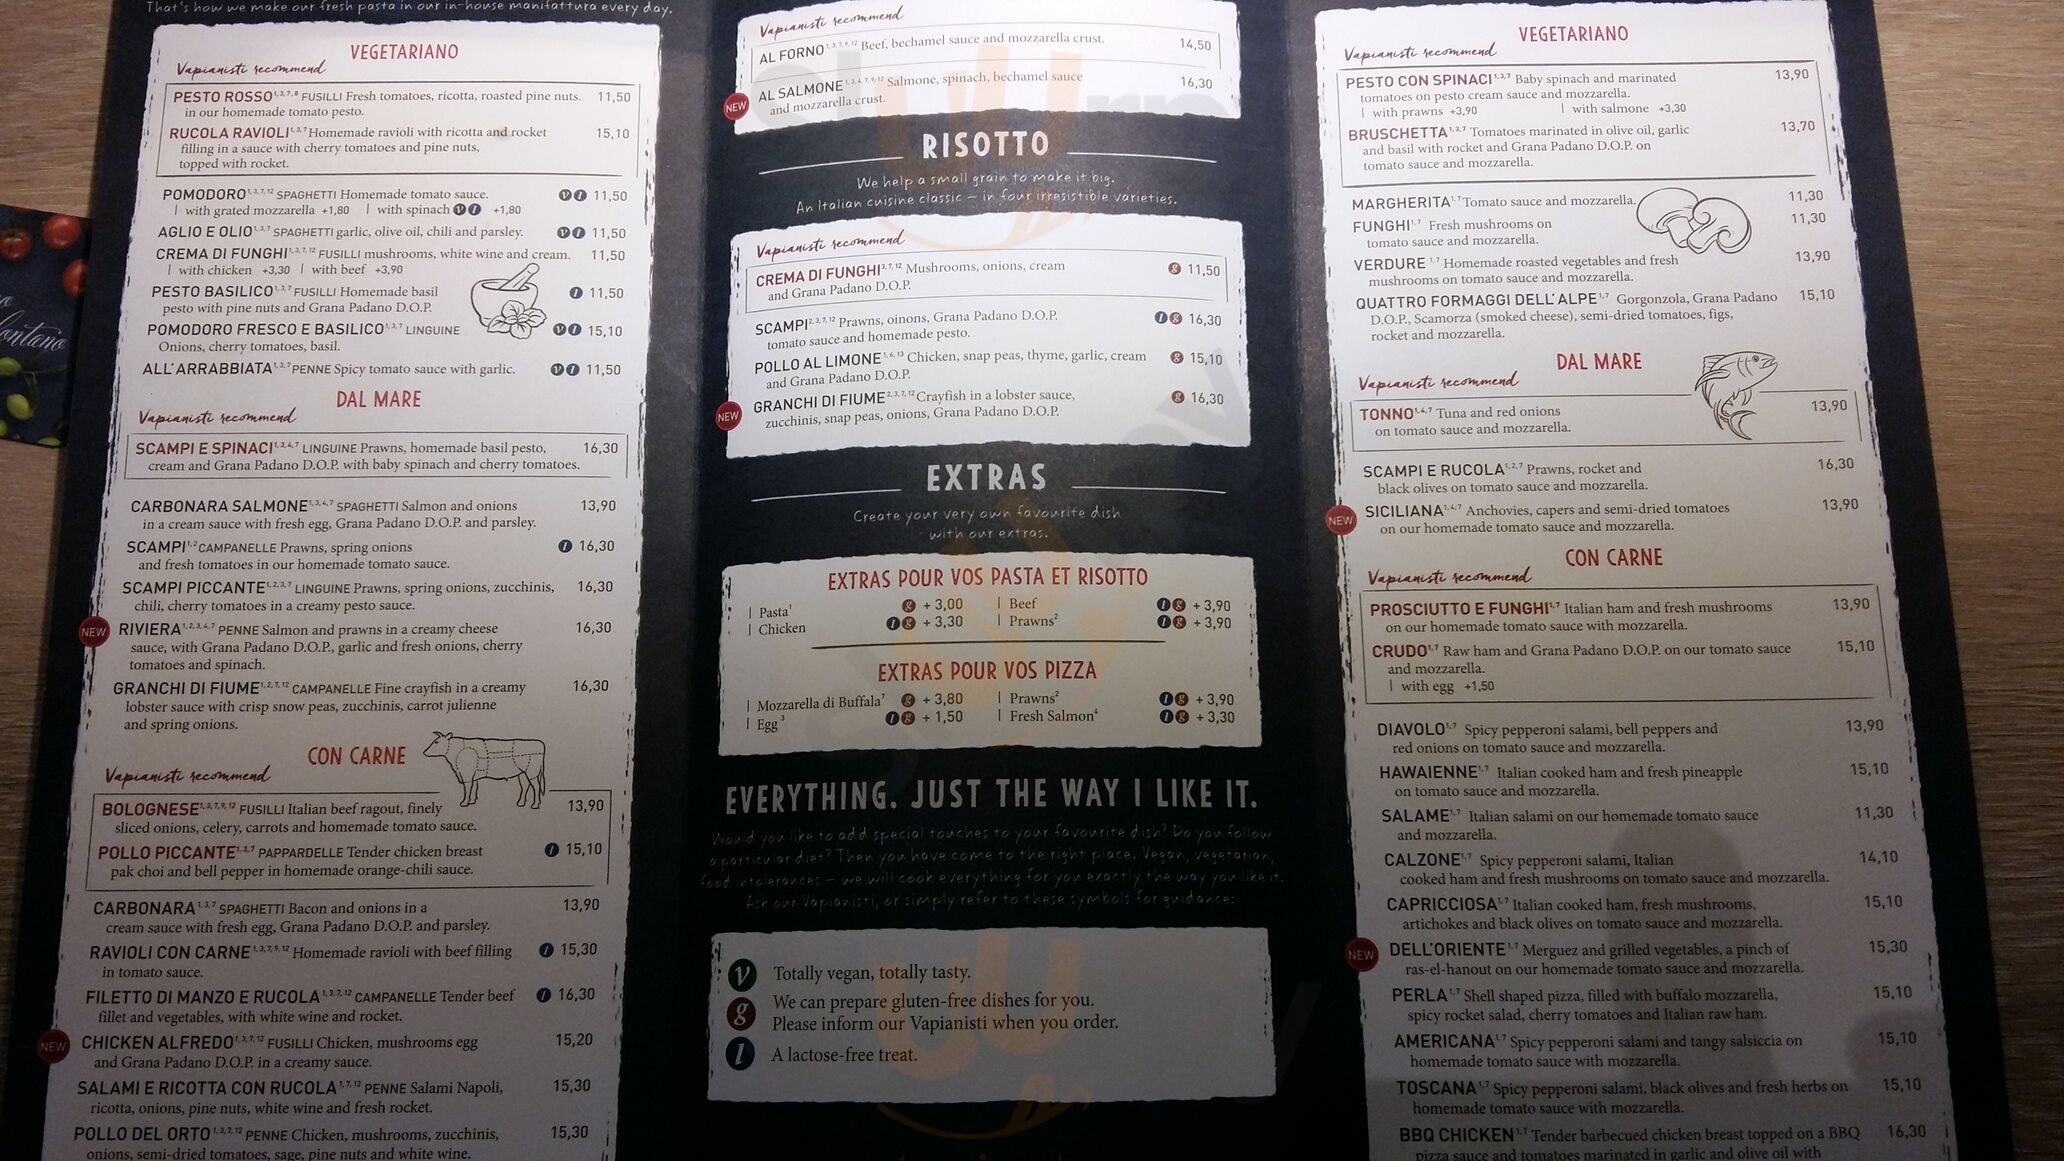 That's how we make our fresh pasta in our in-house manifattura every day.
VEGETARIANO
Vapianisti recommend
PESTO ROSSO1,3,7,8 FUSILLI Fresh tomatoes, ricotta, roasted pine nuts. 11,50
in our homemade tomato pesto.
RUCOLA RAVIOLI1,3,7 Homemade ravioli with ricotta and rocket 15,10
filling in a sauce with cherry tomatoes and pine nuts,
topped with rocket.
POMODORO1,3,7,12 SPAGHETTI Homemade tomato sauce. v l 11,50
| with grated mozzarella +1,80 | with spinach v l +1,80
AGLIO E OLIO1,3,7 SPAGHETTI garlic, olive oil, chili and parsley. v l 11,50
CREMA DI FUNGHI1,3,7,12 FUSILLI mushrooms, white wine and cream. 11,50
| with chicken +3,30 | with beef +3,90
PESTO BASILICO1,3,7 FUSILLI Homemade basil l 11,50
pesto with pine nuts and Grana Padano D.O.P.
POMODORO FRESCO E BASILICO1,3,7 LINGUINE v l 15,10
Onions, cherry tomatoes, basil.
ALL'ARRABBIATA1,3,7 PENNE Spicy tomato sauce with garlic. v l 11,50
DAL MARE
Vapianisti recommend
SCAMPI E SPINACI1,3,4,7 LINGUINE Prawns, homemade basil pesto, 16,30
cream and Grana Padano D.O.P. with baby spinach and cherry tomatoes.
CARBONARA SALMONE1,3,4,7 SPAGHETTI Salmon and onions 13,90
in a cream sauce with fresh egg, Grana Padano D.O.P. and parsley.
SCAMPI1,2 CAMPANELLE Prawns, spring onions l 16,30
and fresh tomatoes in our homemade tomato sauce.
SCAMPI PICCANTE1,2,3,7 LINGUINE Prawns, spring onions, zucchinis, 16,30
chili, cherry tomatoes in a creamy pesto sauce.
NEW RIVIERA1,2,3,4,7 PENNE Salmon and prawns in a creamy cheese 16,30
sauce, with Grana Padano D.O.P., garlic and fresh onions, cherry
tomatoes and spinach.
GRANCHI DI FIUME1,2,7,12 CAMPANELLE Fine crayfish in a creamy 16,30
lobster sauce with crisp snow peas, zucchinis, carrot julienne
and spring onions.
CON CARNE
Vapianisti recommend
BOLOGNESE1,3,7,9,12 FUSILLI Italian beef ragout, finely 13,90
sliced onions, celery, carrots and homemade tomato sauce.
POLLO PICCANTE1,3,7 PAPPARDELLE Tender chicken breast l 15,10
pak choi and bell pepper in homemade orange-chili sauce.
CARBONARA1,3,7 SPAGHETTI Bacon and onions in a 13,90
cream sauce with fresh egg, Grana Padano D.O.P. and parsley.
RAVIOLI CON CARNE1,3,7,9,12 Homemade ravioli with beef filling l 15,30
in tomato sauce.
FILETTO DI MANZO E RUCOLA1,3,7,12 CAMPANELLE Tender beef l 16,30
fillet and vegetables, with white wine and rocket.
NEW CHICKEN ALFREDO1,3,7,12 FUSILLI Chicken, mushrooms egg 15,20
and Grana Padano D.O.P. in a creamy sauce.
SALAMI E RICOTTA CON RUCOLA1,7,12 PENNE Salami Napoli, 15,30
ricotta, onions, pine nuts, white wine and fresh rocket.
POLLO DEL ORTO1,3,7,12 PENNE Chicken, mushrooms, zucchinis, 15,30
onions, semi-dried tomatoes, sage, pine nuts and white wine.
Vapianisti recommend
AL FORNO1,3,7,9,12 Beef, bechamel sauce and mozzarella crust. 14,50
NEW AL SALMONE1,3,4,7,9,12 Salmone, spinach, bechamel sauce 16,30
and mozzarella crust.
RISOTTO
We help a small grain to make it big.
An Italian cuisine classic – in four irresistible varieties.
Vapianisti recommend
CREMA DI FUNGHI3,7,12 Mushrooms, onions, cream g 11,50
and Grana Padano D.O.P.
SCAMPI2,3,7,12 Prawns, oinons, Grana Padano D.O.P. l g 16,30
tomato sauce and homemade pesto.
POLLO AL LIMONE1,6,13 Chicken, snap peas, thyme, garlic, cream g 15,10
and Grana Padano D.O.P.
NEW GRANCHI DI FIUME2,3,7,12 Crayfish in a lobster sauce, g 16,30
zucchinis, snap peas, onions, Grana Padano D.O.P.
EXTRAS
Create your very own favourite dish
with our extras.
EXTRAS POUR VOS PASTA ET RISOTTO
| Pasta1 g + 3,00 | Beef l g + 3,90
| Chicken l g + 3,30 | Prawns2 l g + 3,90
EXTRAS POUR VOS PIZZA
| Mozzarella di Buffala7 g + 3,80 | Prawns2 l g + 3,90
| Egg3 l g + 1,50 | Fresh Salmon4 l g + 3,30
EVERYTHING. JUST THE WAY I LIKE IT.
Would you like to add special touches to your favourite dish? Do you follow
a particular diet? Then you have come to the right place. Vegan, vegetarian,
food intolerances – we will cook everything for you exactly the way you like it.
Ask our Vapianisti, or simply refer to these symbols for guidance:
v Totally vegan, totally tasty.
g We can prepare gluten-free dishes for you.
Please inform our Vapianisti when you order.
l A lactose-free treat.
VEGETARIANO
Vapianisti recommend
PESTO CON SPINACI1,3,7 Baby spinach and marinated 13,90
tomatoes on pesto cream sauce and mozzarella.
| with prawns +3,90 | with salmone +3,30
BRUSCHETTA1,3,7 Tomatoes marinated in olive oil, garlic 13,70
and basil with rocket and Grana Padano D.O.P. on
tomato sauce and mozzarella.
MARGHERITA1,7 Tomato sauce and mozzarella. 11,30
FUNGHI1,7 Fresh mushrooms on 11,30
tomato sauce and mozzarella.
VERDURE1,7 Homemade roasted vegetables and fresh 13,90
mushrooms on tomato sauce and mozzarella.
QUATTRO FORMAGGI DELL'ALPE1,7 Gorgonzola, Grana Padano 15,10
D.O.P., Scamorza (smoked cheese), semi-dried tomatoes, figs,
rocket and mozzarella.
DAL MARE
Vapianisti recommend
TONNO1,4,7 Tuna and red onions 13,90
on tomato sauce and mozzarella.
SCAMPI E RUCOLA1,2,7 Prawns, rocket and 16,30
black olives on tomato sauce and mozzarella.
NEW SICILIANA1,4,7 Anchovies, capers and semi-dried tomatoes 13,90
on our homemade tomato sauce and mozzarella.
CON CARNE
Vapianisti recommend
PROSCIUTTO E FUNGHI1,7 Italian ham and fresh mushrooms 13,90
on our homemade tomato sauce with mozzarella.
CRUDO1,7 Raw ham and Grana Padano D.O.P. on our tomato sauce 15,10
and mozzarella.
| with egg +1,50
DIAVOLO1,7 Spicy pepperoni salami, bell peppers and 13,90
red onions on tomato sauce and mozzarella.
HAWAIENNE1,7 Italian cooked ham and fresh pineapple 15,10
on tomato sauce and mozzarella.
SALAME1,7 Italian salami on our homemade tomato sauce 11,30
and mozzarella.
CALZONE1,7 Spicy pepperoni salami, Italian 14,10
cooked ham and fresh mushrooms on tomato sauce and mozzarella.
CAPRICCIOSA1,7 Italian cooked ham, fresh mushrooms, 15,10
artichokes and black olives on tomato sauce and mozzarella.
NEW DELL'ORIENTE1,7 Merguez and grilled vegetables, a pinch of 15,30
ras-el-hanout on our homemade tomato sauce and mozzarella.
PERLA1,7 Shell shaped pizza, filled with buffalo mozzarella, 15,10
spicy rocket salad, cherry tomatoes and Italian raw ham.
AMERICANA1,7 Spicy pepperoni salami and tangy salsiccia on 15,10
homemade tomato sauce with mozzarella.
TOSCANA1,7 Spicy pepperoni salami, black olives and fresh herbs on 15,10
homemade tomato sauce with mozzarella.
BBQ CHICKEN1,7 Tender barbecued chicken breast topped on a BBQ 16,30
pizza sauce and tomatoes marinated in garlic and olive oil with